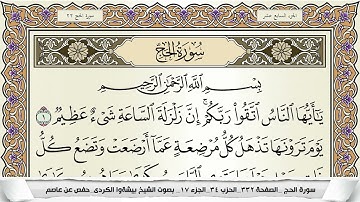 الجزء السابع عشر
سورة الحج ٢٢
سُورَةُ الحَجِّ
بِسْمِ اللَّهِ الرَّحْمَٰنِ الرَّحِيمِ
يَا أَيُّهَا النَّاسُ اتَّقُوا رَبَّكُمْ ۚ إِنَّ زَلْزَلَةَ السَّاعَةِ شَيْءٌ عَظِيمٌ ١
يَوْمَ تَرَوْنَهَا تَذْهَلُ كُلُّ مُرْضِعَةٍ عَمَّا أَرْضَعَتْ وَتَضَعُ كُلُّ
سورة الحج _ الصفحة ٣٣٢_ الحزب ٣٤_ الجزء ١٧_ بصوت الشيخ بيشةوا الكردي_ حفص عن عاصم